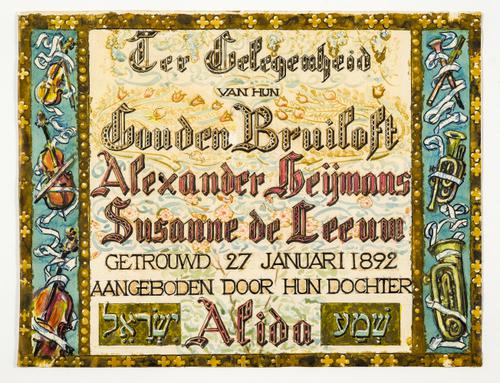 Ter Gelegenheid
VAN HUN
Gouden Bruiloft
Alexander Heijmans
Susanne de Leeuw
GETROUWD 27 JANUARI 1892
AANGEBODEN DOOR HUN DOCHTER
שְׁמַע Alida יִשְׂרָאֵל